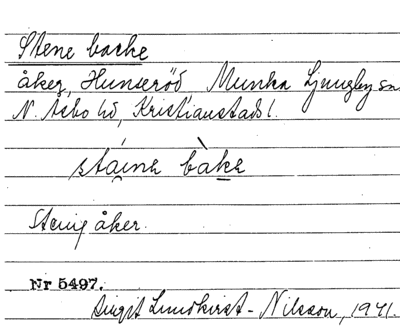 Stene backe
åker, Hunseröd, Munka Ljungby sn.
N. Åsbo hd, Kristianstads l.
stáine bàke
Stenig åker.
Nr 5497.
Birgit Lundkvist-Nilsson, 1941.